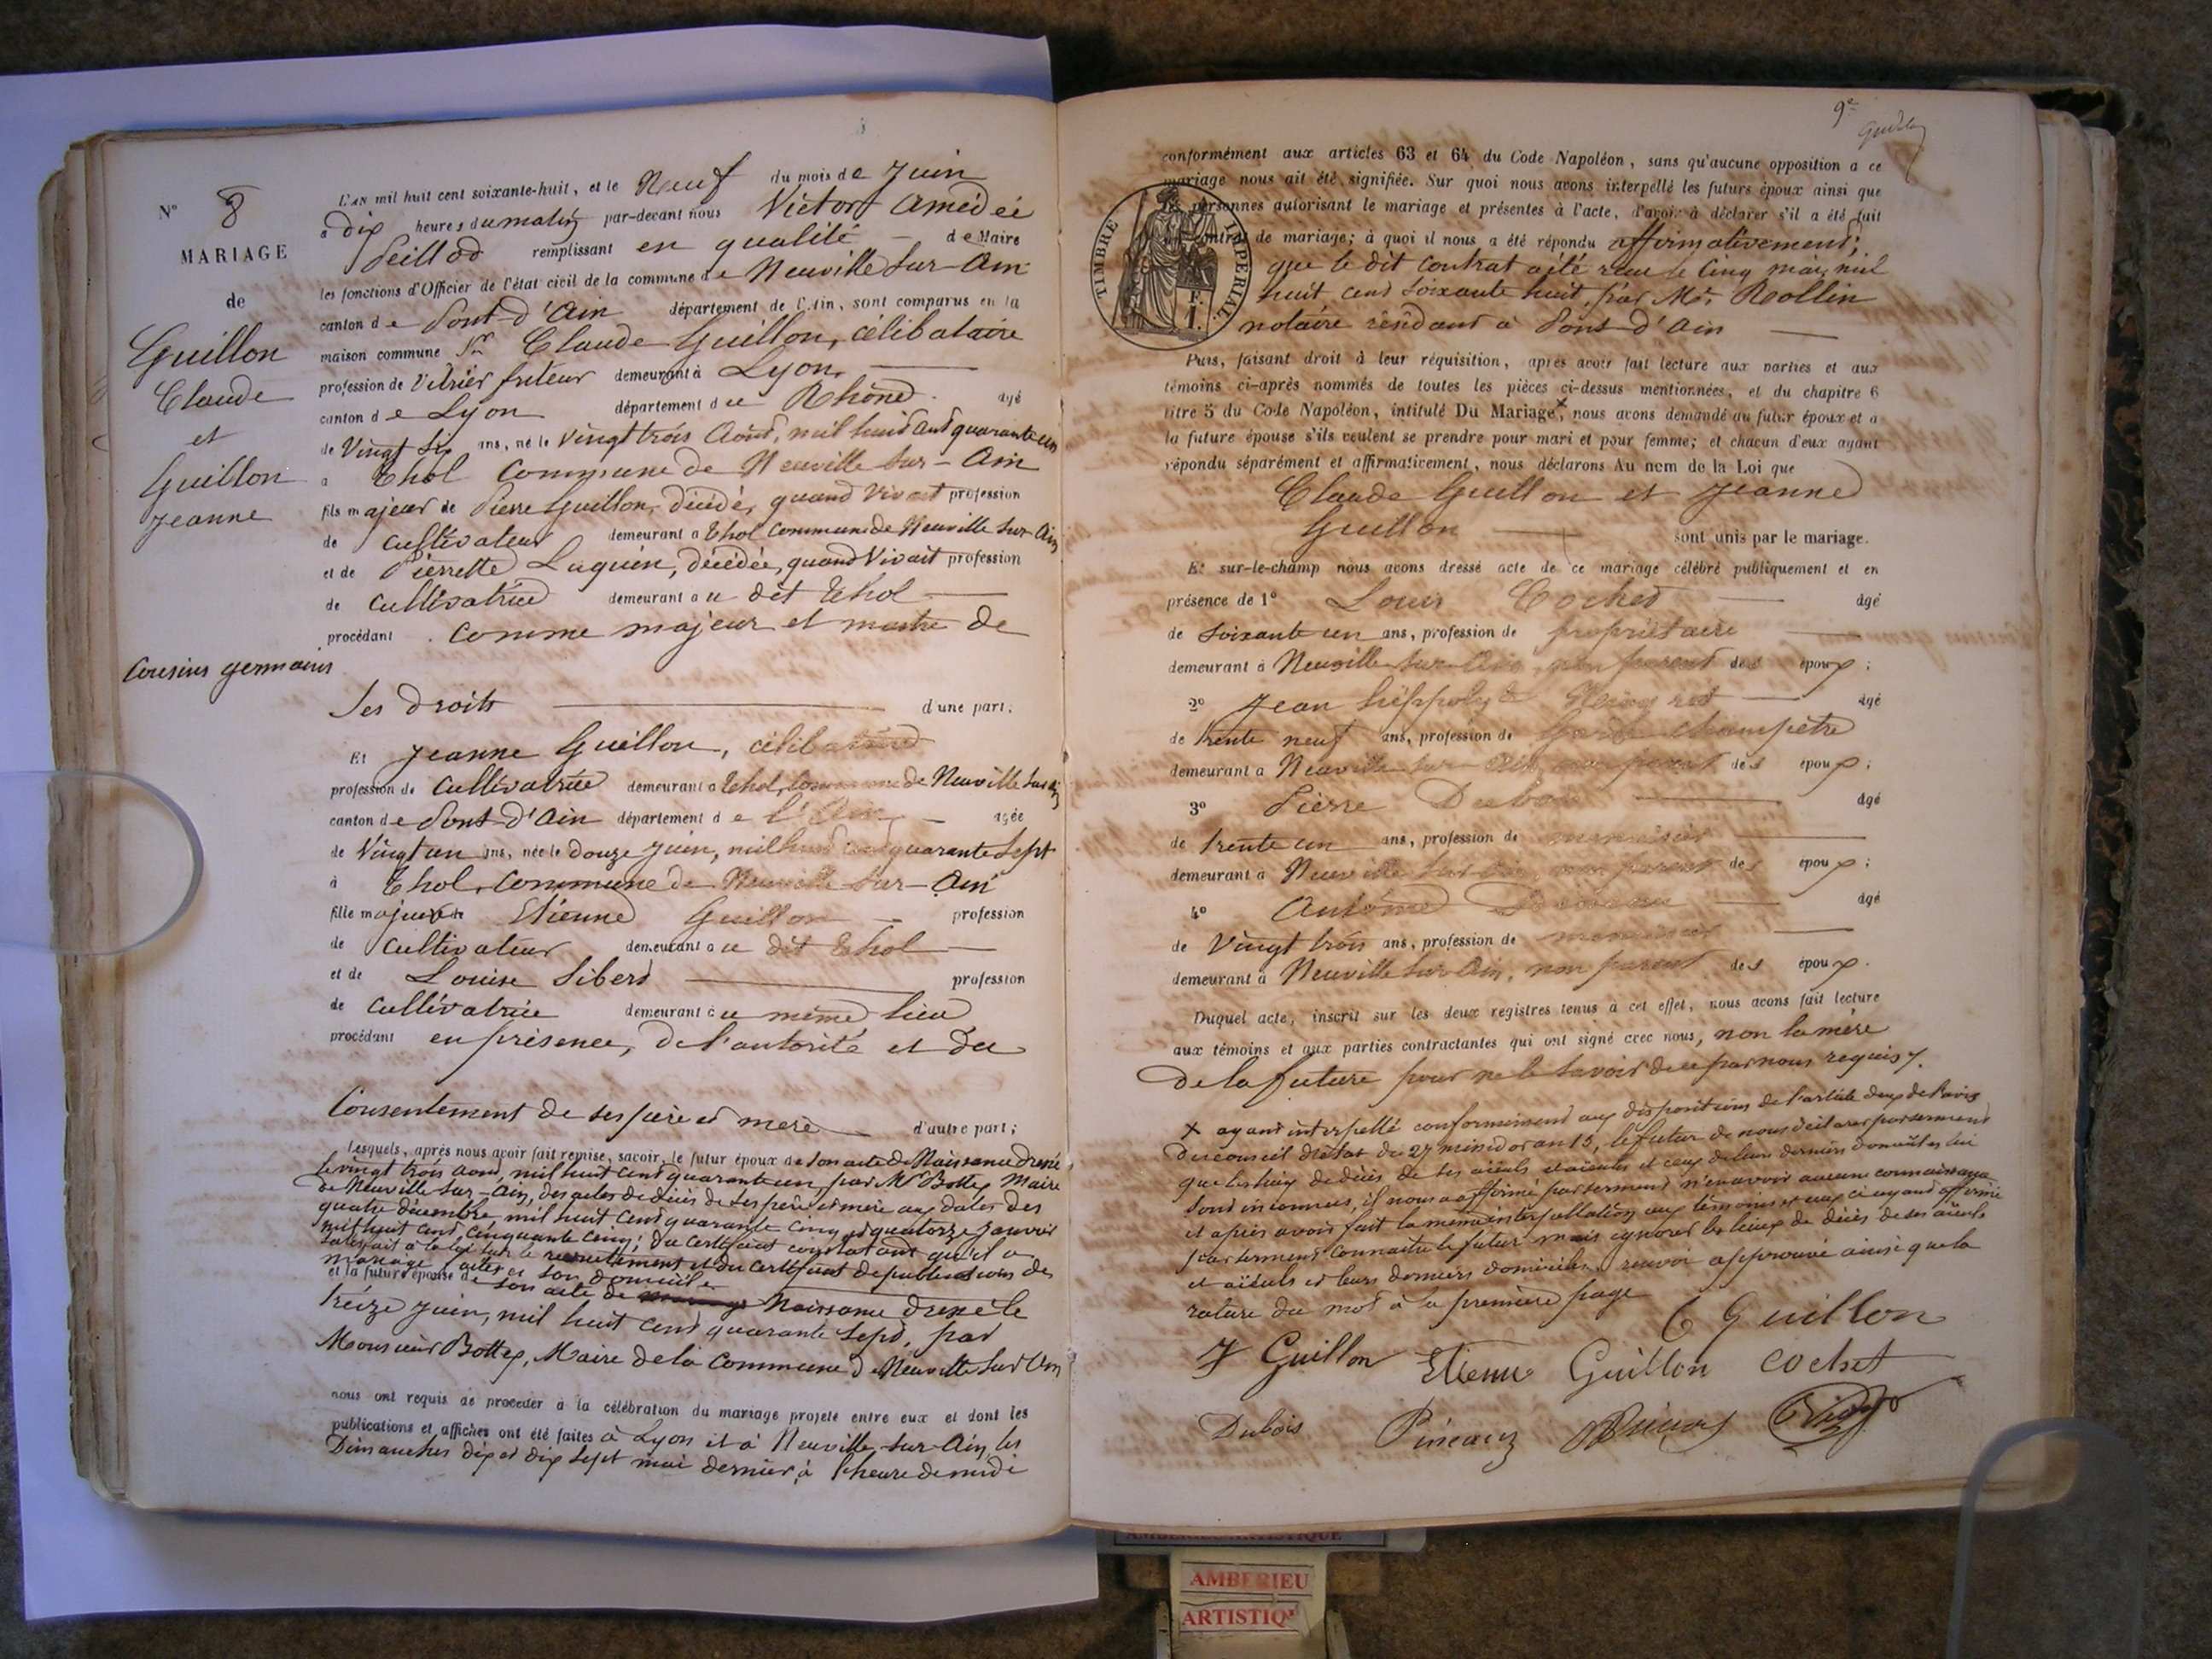 N° 8
MARIAGE
de
Guillon
Claude
et
Guillon
Jeanne
Cousins germains
L'AN mil huit cent soixante-huit, et le Neuf du mois de Juin
à dix heures du matin par-devant nous Victor Amédée
remplissant en qualité de Maire
les fonctions d'Officier de l'état civil de la commune de Neuville sur-Ain
canton de Pont-d'Ain département de l'Ain, sont comparus en la
maison commune Sr Claude Guillon, célibataire
profession de demeurant à Lyon,
canton de Lyon département du Rhône. âgé
de Vingt six ans, né le vingt trois Août, mil huit cent quarante un
à Thol commune de Neuville sur-Ain
fils majeur de Pierre Guillon, décédé, quand vivait profession
de cultivateur demeurant à Thol commune de Neuville sur-Ain
et de Pierrette décédée, quand Vivait profession
de cultivatrice demeurant au dit Thol
procédant comme majeur et maître de
ses droits d'une part;
Et Jeanne Guillon, célibataire
profession de cultivatrice demeurant à Thol, Commune de Neuville sur Ain
canton de Pont-d'Ain département de l'Ain âgée
de Vingt un ans, née le douze Juin, mil huit cent quarante Sept
à Thol, commune de Neuville sur-Ain
fille majeure de Etienne Guillon profession
de cultivateur demeurant au dit Thol
et de Louise Sibert profession
de cultivatrice demeurant au même lieu
procédant en présence, de l'autorité et du
Consentement de ses père et mère d'autre part;
Lesquels, après nous avoir fait remise, savoir, le futur époux de son acte de Naissance dressé
le vingt trois août, mil huit cent quarante un, par Mr Bottex Maire
de Neuville sur-Ain, des actes de décès de ses père et mère aux dates des
quatre décembre mil huit cent quarante cinq et quatorze Janvier
mil huit cent cinquante cinq; du certificat constatant qu'il a
satisfait à la loi sur le recrutement et du certificat de publications de
mariage faites à son domicile
et la future épouse de son acte de Naissance dressé le
treize Juin, mil huit cent quarante sept, par
Monsieur Bottex, Maire de la commune de Neuville sur Ain
nous ont requis de procéder à la célébration du mariage projeté entre eux et dont les
publications et affiches ont été faites à Lyon et à Neuville-sur-Ain, les
Dimanches dix et dix sept mai dernier, à l'heure de midi
9e
conformément aux articles 63 et 64 du Code Napoléon, sans qu'aucune opposition à ce
mariage nous ait été signifiée. Sur quoi nous avons interpellé les futurs époux ainsi que
les personnes autorisant le mariage et présentes à l'acte, d'avoir à déclarer s'il a été fait
un contrat de mariage; à quoi il nous a été répondu affirmativement;
que le dit contrat a été reçu le cinq mai, mil
huit cent soixante huit, par Me Rollin
notaire résidant à Pont-d'Ain
TIMBRE IMPERIAL
F.
1.
Puis, faisant droit à leur réquisition, après avoir fait lecture aux parties et aux
témoins ci-après nommés de toutes les pièces ci-dessus mentionnées, et du chapitre 6
titre 5 du Code Napoléon, intitulé Du Mariage, x nous avons demandé au futur époux et à
la future épouse s'ils veulent se prendre pour mari et pour femme; et chacun d'eux ayant
répondu séparément et affirmativement, nous déclarons Au nom de la Loi que
Claude Guillon et Jeanne
Guillon sont unis par le mariage.
Et sur-le-champ nous avons dressé acte de ce mariage célébré publiquement et en
présence de 1° Louis Cochet âgé
de soixante un ans, profession de propriétaire
demeurant à Neuville sur-Ain, non parent des époux;
2° Jean hippolyte âgé
de trente neuf ans, profession de Garde champêtre
demeurant à Neuville sur-Ain, non parent des époux;
3° Pierre Dubois âgé
de trente un ans, profession de menuisier
demeurant à Neuville sur Ain, non parent des époux;
4° Antoine âgé
de Vingt trois ans, profession de menuisier
demeurant à Neuville sur Ain, non parent des époux.
Duquel acte, inscrit sur les deux registres tenus à cet effet, nous avons fait lecture
aux témoins et aux parties contractantes qui ont signé avec nous, non la mère
de la future pour ne le savoir de ce par nous requis.
x ayant interpellé conformément aux dispositions de l'article deux de l'avis
du conseil d'état du 27 an 13, le futur de nous déclarer par serment
que les lieux de décès de ses aïeuls et aïeules et ceux de leurs derniers domiciles lui
sont inconnus, il nous a affirmé par serment n'en avoir aucune connaissance
et après avoir fait la même interpellation aux témoins et ceux-ci ayant affirmé
par serment connaître le futur mais ignorer les lieux de décès de ses aïeuls
et aïeules et leurs derniers domiciles. renvoi approuvé ainsi que la
rature du mot à la première page
C Guillon
J Guillon Etienne Guillon cochet
Dubois
AMBERIEU ARTISTIQUE
AMBERIEU
ARTISTIQ